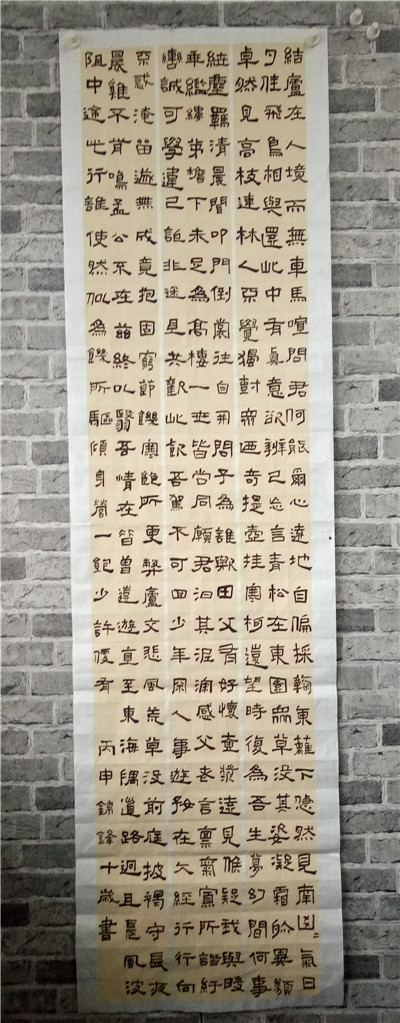 結廬在人境而無車馬喧問君何能爾心遠地自偏採鞠東籬下悠然見南山〻氣日
夕佳飛鳥相與還此中有真意欲辨已忘言青松在東園眾草沒其姿凝霜殄異類
卓然見高枝連林人不覺獨樹眾迺奇提壺挂寒柯遠望時復為吾生夢幻間何事
紲塵羈清晨聞叩門倒裳往自開問子為誰歟田父有好懷壺漿遠見候疑我與時
乖繿縷茅檐下未足為高棲一世皆尚同願君汩其泥深感父老言稟氣寡所諧紆
轡誠可學違己詎非迷且共歡此飲吾駕不可回少年罕人事遊好在六經行行向
不惑淹留遂無成竟抱固窮節饑寒飽所更弊廬交悲風荒草沒前庭披褐守長夜
晨雞不肯鳴孟公不在茲終以翳吾情在昔曾遠遊直至東海隅道路迥且長風波
阻中途此行誰使然似為饑所驅傾身營一飽少許便有 丙申錦鋒十歲書